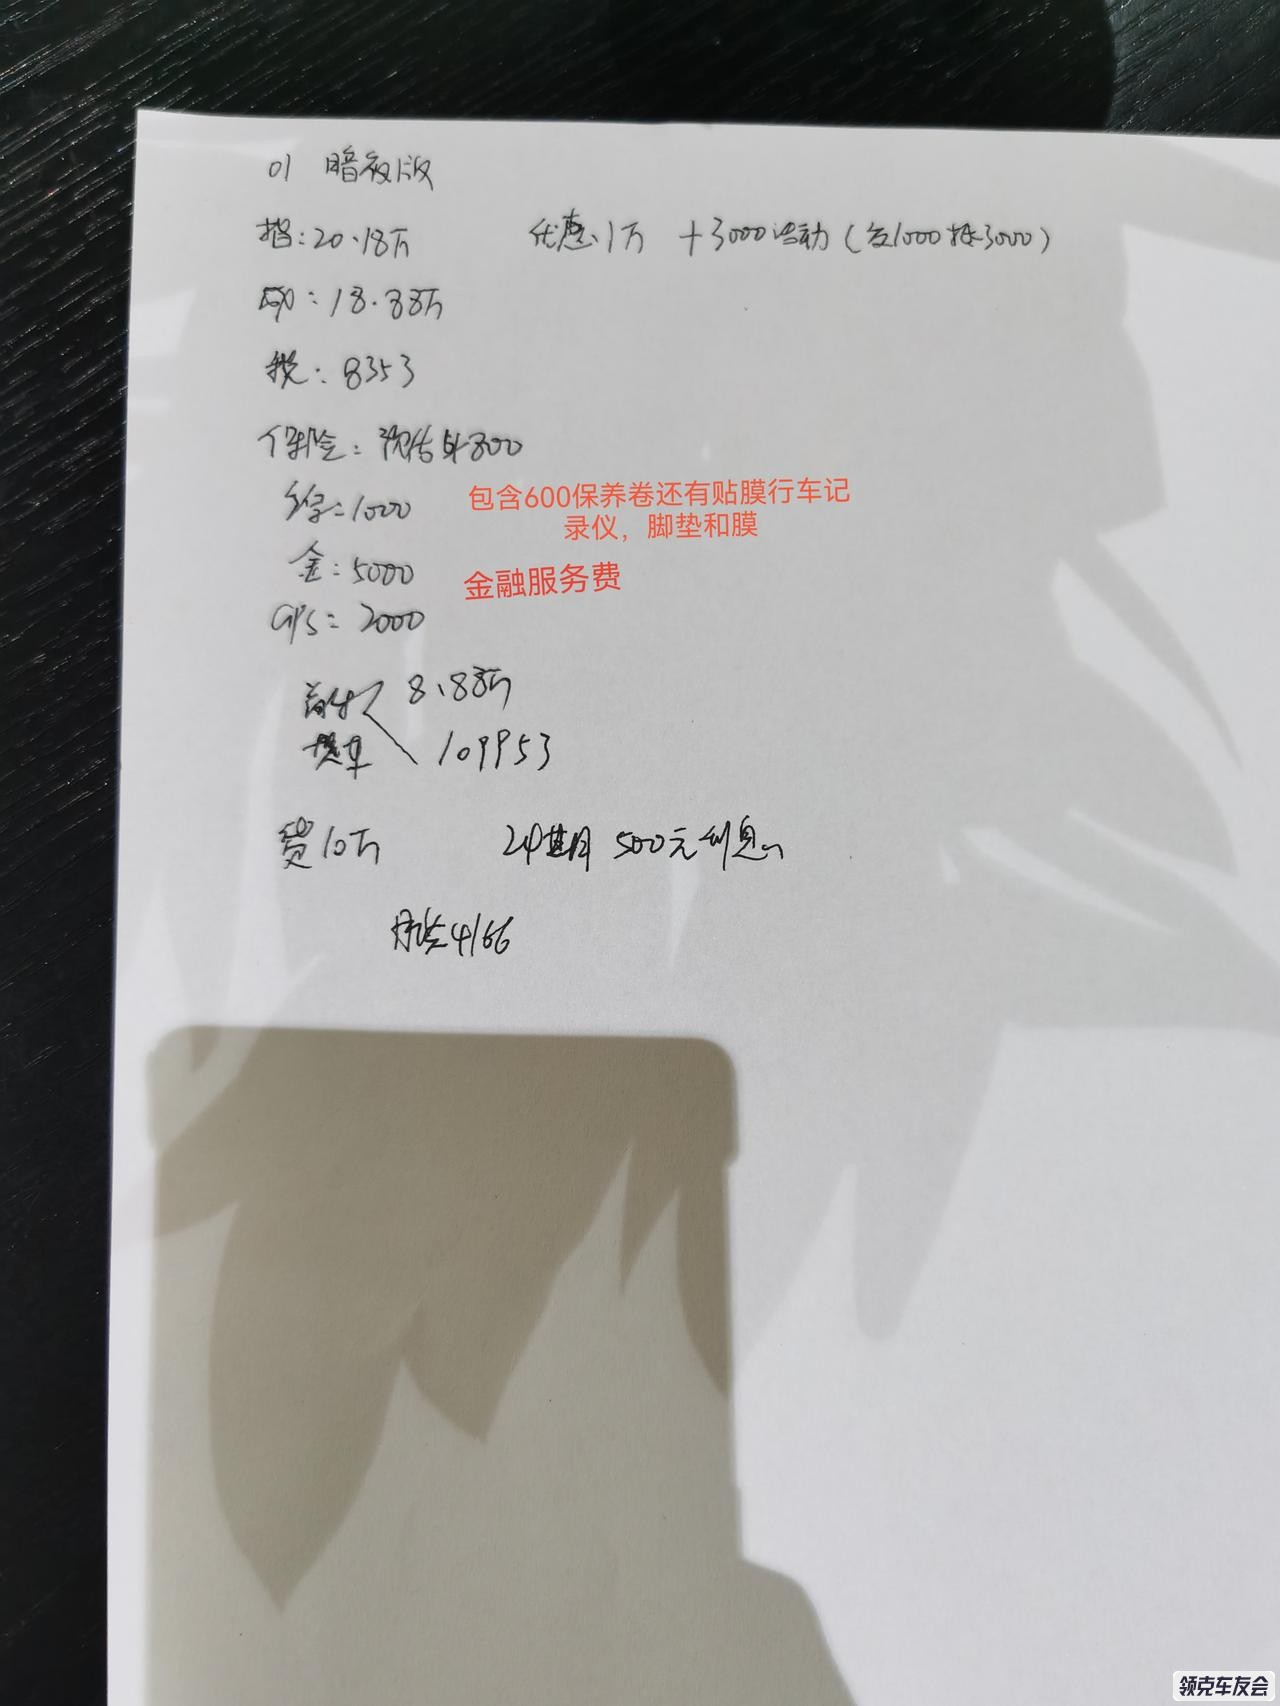 01 暗夜版
指:20.18万 优惠1万 +3000活动(交1000抵3000)
即:18.88万
税:8353
保险:预估4800
综:1000 包含600保养卷还有贴膜行车记
录仪，脚垫和膜
金:5000 金融服务费
GPS:2000
首付 8.88万
提车 109953
贷10万 24期 500元利息
月供4166
领克车友会